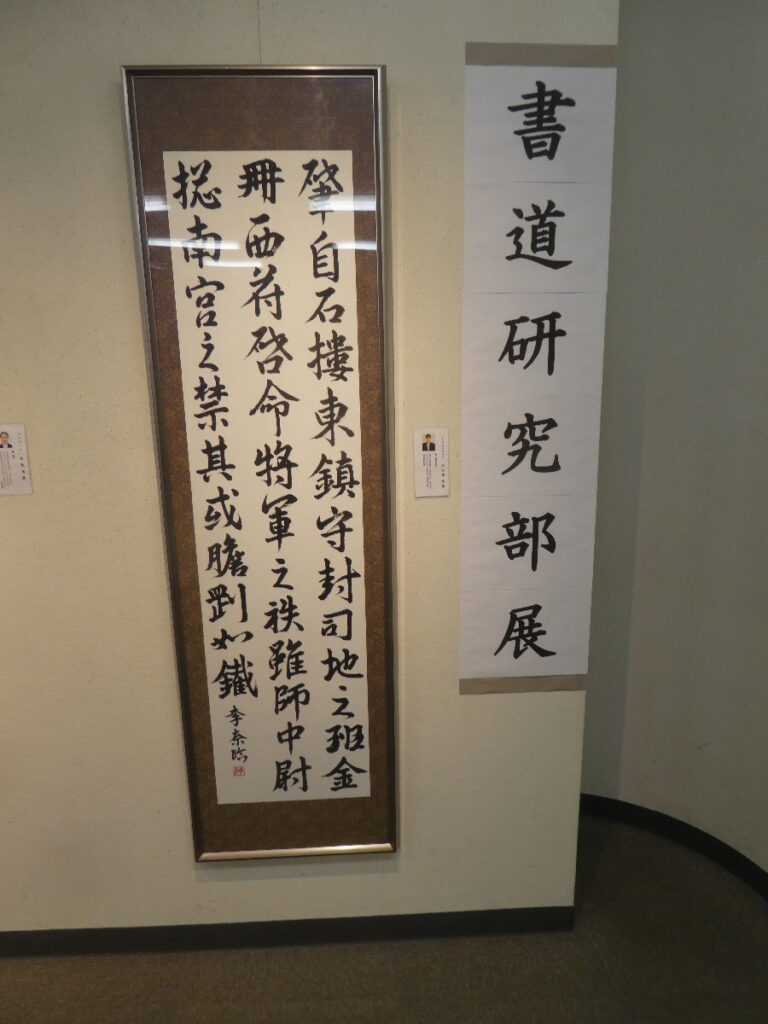 書道研究部展
肇自石搜東鎮守封司地之班金
冊西苻啓命將軍之秩雖師中尉
揔南宮之禁其或膽剛如鐵
李泰臨